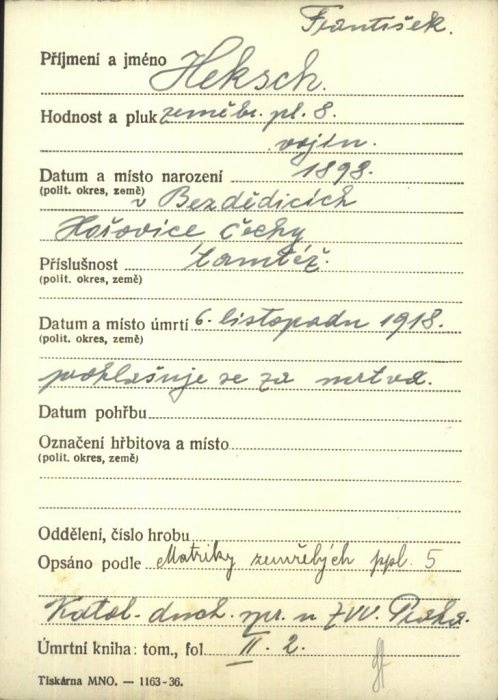 František.
Příjmení a jméno Heksch.
Hodnost a pluk zeměbr. pl. 8.
vojín.
Datum a místo narození 1898.
(polit. okres, země) v Bezdědicích
Hořovice Čechy
Příslušnost tamtéž.
(polit. okres, země)
Datum a místo úmrtí 6. listopadu 1918.
(polit. okres, země)
prohlašuje se za mrtva.
Datum pohřbu
Označení hřbitova a místo
(polit. okres, země)
Oddělení, číslo hrobu
Opsáno podle Matriky zemřelých ppl. 5
Katol. duch. spr. u ZVV. Praha.
Úmrtní kniha: tom., fol. II. 2.
Tiskárna MNO. — 1163-36.